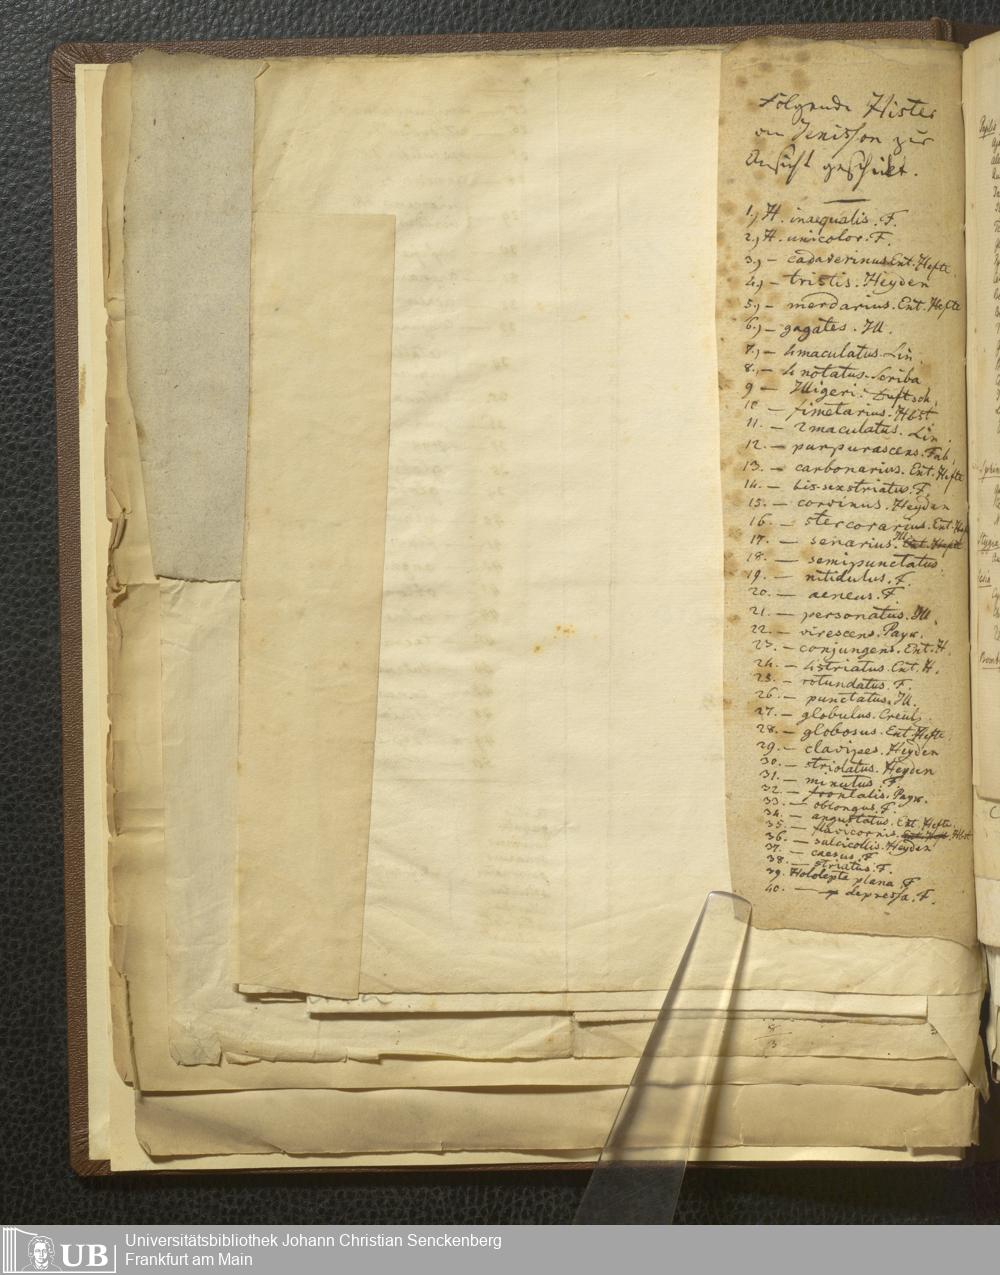 Folgende Hister
an Jenisson zur
Ansicht geschickt.
1.) H. inaequalis. F.
2.) H. unicolor. F.
3.) — cadaverinus. Ent. Hefte.
4.) — tristis. Heyden
5.) — merdarius. Ent. Hefte
6.) — gagates. Ill.
7.) — 4maculatus. Lin.
8.) — 4 notatus. Scriba
9 — Illigeri. Duftsch.
10 — fimetarius. Hbst
11. — 2maculatus. Lin.
12. — purpurascens. Fab.
13. — carbonarius. Ent. Hefte
14. — bis-sexstriatus. F.
15. — corvinus. Heyden
16. — stercorarius. Ent. Hefte
17. — senarius. Ill. Ent. Hefte
18. — semipunctatus.
19. — nitidulus. F.
20. — aeneus. F.
21. — personatus. Ill.
22. — virescens. Payk.
23. — conjungens. Ent. H.
24. — 4striatus. Ent. H.
25. — rotundatus. F.
26. — punctatus. Ill.
27. — globulus. Creutz.
28. — globosus. Ent. Hefte.
29. — clavipes. Heyden
30. — striolatus. Heyden
31. — minutus. F.
32. — frontalis. Payk.
33. — oblongus. F.
34. — angustatus. Ent. Hefte.
35. — flavicornis. Ent. Heft. Hbst
36. — sulcicollis. Heyden
37. — caesus. F.
38. — striatus. F.
39. Hololepta plana. F.
40. — depressa. F.
8
3
UB
Universitätsbibliothek Johann Christian Senckenberg
Frankfurt am Main